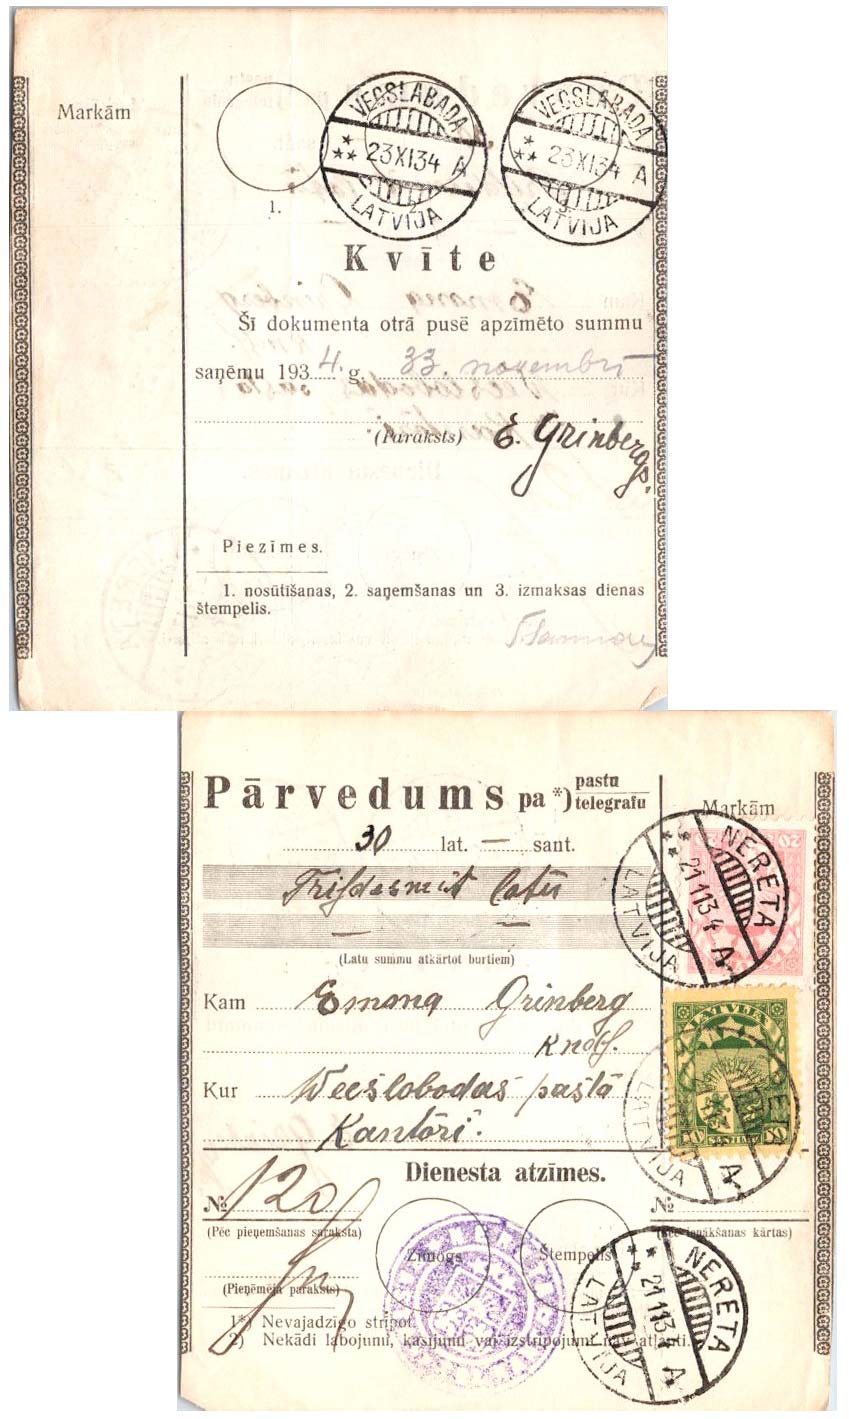 Markām
VECSLABADA
23 XI 34 A
LATVIJA
VECSLABADA
23 XI 34 A
LATVIJA
1.
2.
3.
Kvīte
Šī dokumenta otrā pusē apzīmēto summu
saņēmu 1934. g. 33. novembrī
(Paraksts) E. Grinbergs.
Piezīmes.
1. nosūtīšanas, 2. saņemšanas un 3. izmaksas dienas
štempelis.
Pārvedums pa *) pastu
telegrafu
Markām
30 lat. — sant.
Trīsdesmit latu
(Latu summu atkārtot burtiem)
20
NERETA
21 11 34 A
LATVIJA
Kam Emma Grinberg
kndz.
Kur Wecslobodas pastā
Kantōrī.
LATVIJA
SANTIMU
NERETA
A
LATVIJA
Dienesta atzīmes.
№ 120
№
(Pēc pieņemšanas saraksta)
(Pēc ienākšanas kārtas)
Zīmogs
Štempelis
(Pieņēmēja paraksts)
NERETA
21 11 34 A
LATVIJA
1*) Nevajadzīgo strīpot.
2) Nekādi labojumi, kasījumi vai izstrīpojumi nav atļauti.